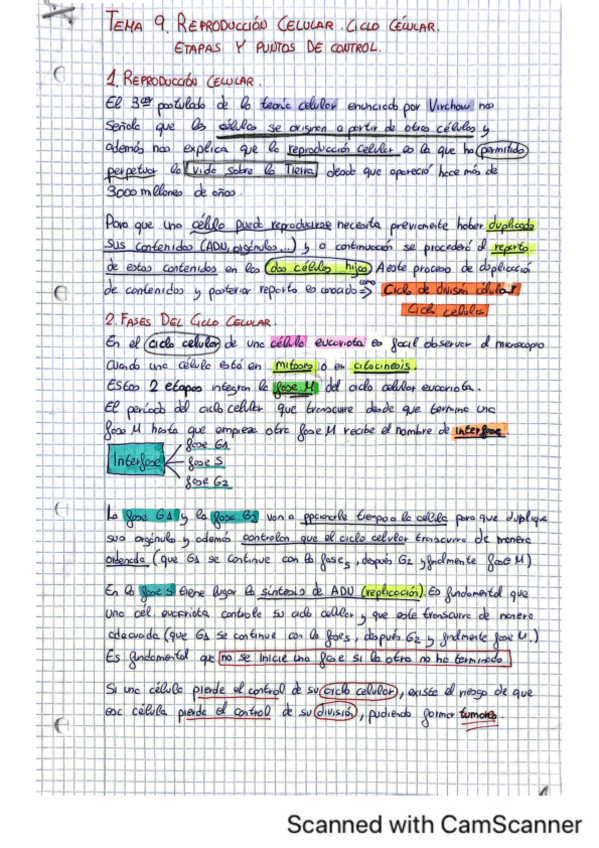 TEMA 9. REPRODUCCIÓN CELULAR. CICLO CÉLULAR.
ETAPAS Y PUNTOS DE CONTROL.
1. REPRODUCCIÓN CELULAR.
El 3er postulado de la teoría celular enunciado por Virchow nos
señala que las células se originan a partir de otras células y
además nos explica que la reproducción celular es la que ha permitido
perpetuar la vida sobre la Tierra desde que apareció hace más de
3000 millones de años.
Para que una célula pueda reproducirse necesita previamente haber duplicado
sus contenidos (ADN, orgánulos,...) y a continuación se procederá al reparto
de estos contenidos en las dos células hijas. A este proceso de duplicación
de contenidos y posterior reparto es conocido como ⇒ Ciclo de división celular
Ciclo celular
2. FASES DEL CICLO CELULAR.
En el ciclo celular de una célula eucariota es fácil observar al microscopio
cuando una célula está en mitosis o en citocinesis.
Estas 2 etapas integran la fase M del ciclo celular eucariota.
El período del ciclo celular que transcurre desde que termina una
fase M hasta que empieza otra fase M recibe el nombre de interfase
fase G1
Interfase fase S
fase G2
La fase G1 y la fase G2 van a tiempo a la célula para que duplique
sus orgánulos y además controlan que el ciclo celular transcurra de manera
ordenada (que G1 se continue con la fase S, después G2 y finalmente fase M)
En la fase S tiene lugar la síntesis de ADN (replicación). Es fundamental que
una cél eucariota controle su ciclo celular y que este transcurra de manera
adecuada (que G1 se continue con la fase S, después G2 y finalmente fase M.)
Es fundamental que no se inicie una fase si la otra no ha terminado
Si una célula pierde el control de su ciclo celular, existe el riesgo de que
esa célula pierda el control de su división, pudiendo formar tumores.
Scanned with CamScanner